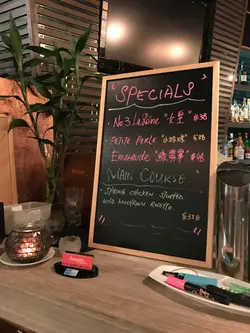 SPECIALS
No 3 La Reine "女皇" 83B
PETITE PERLE "小珍珠" 53B
Emeraude "綠翡翠" 48
MAIN COURSE
SPRING CHICKEN STUFFED
WILD MUSHROOM RISOTTO